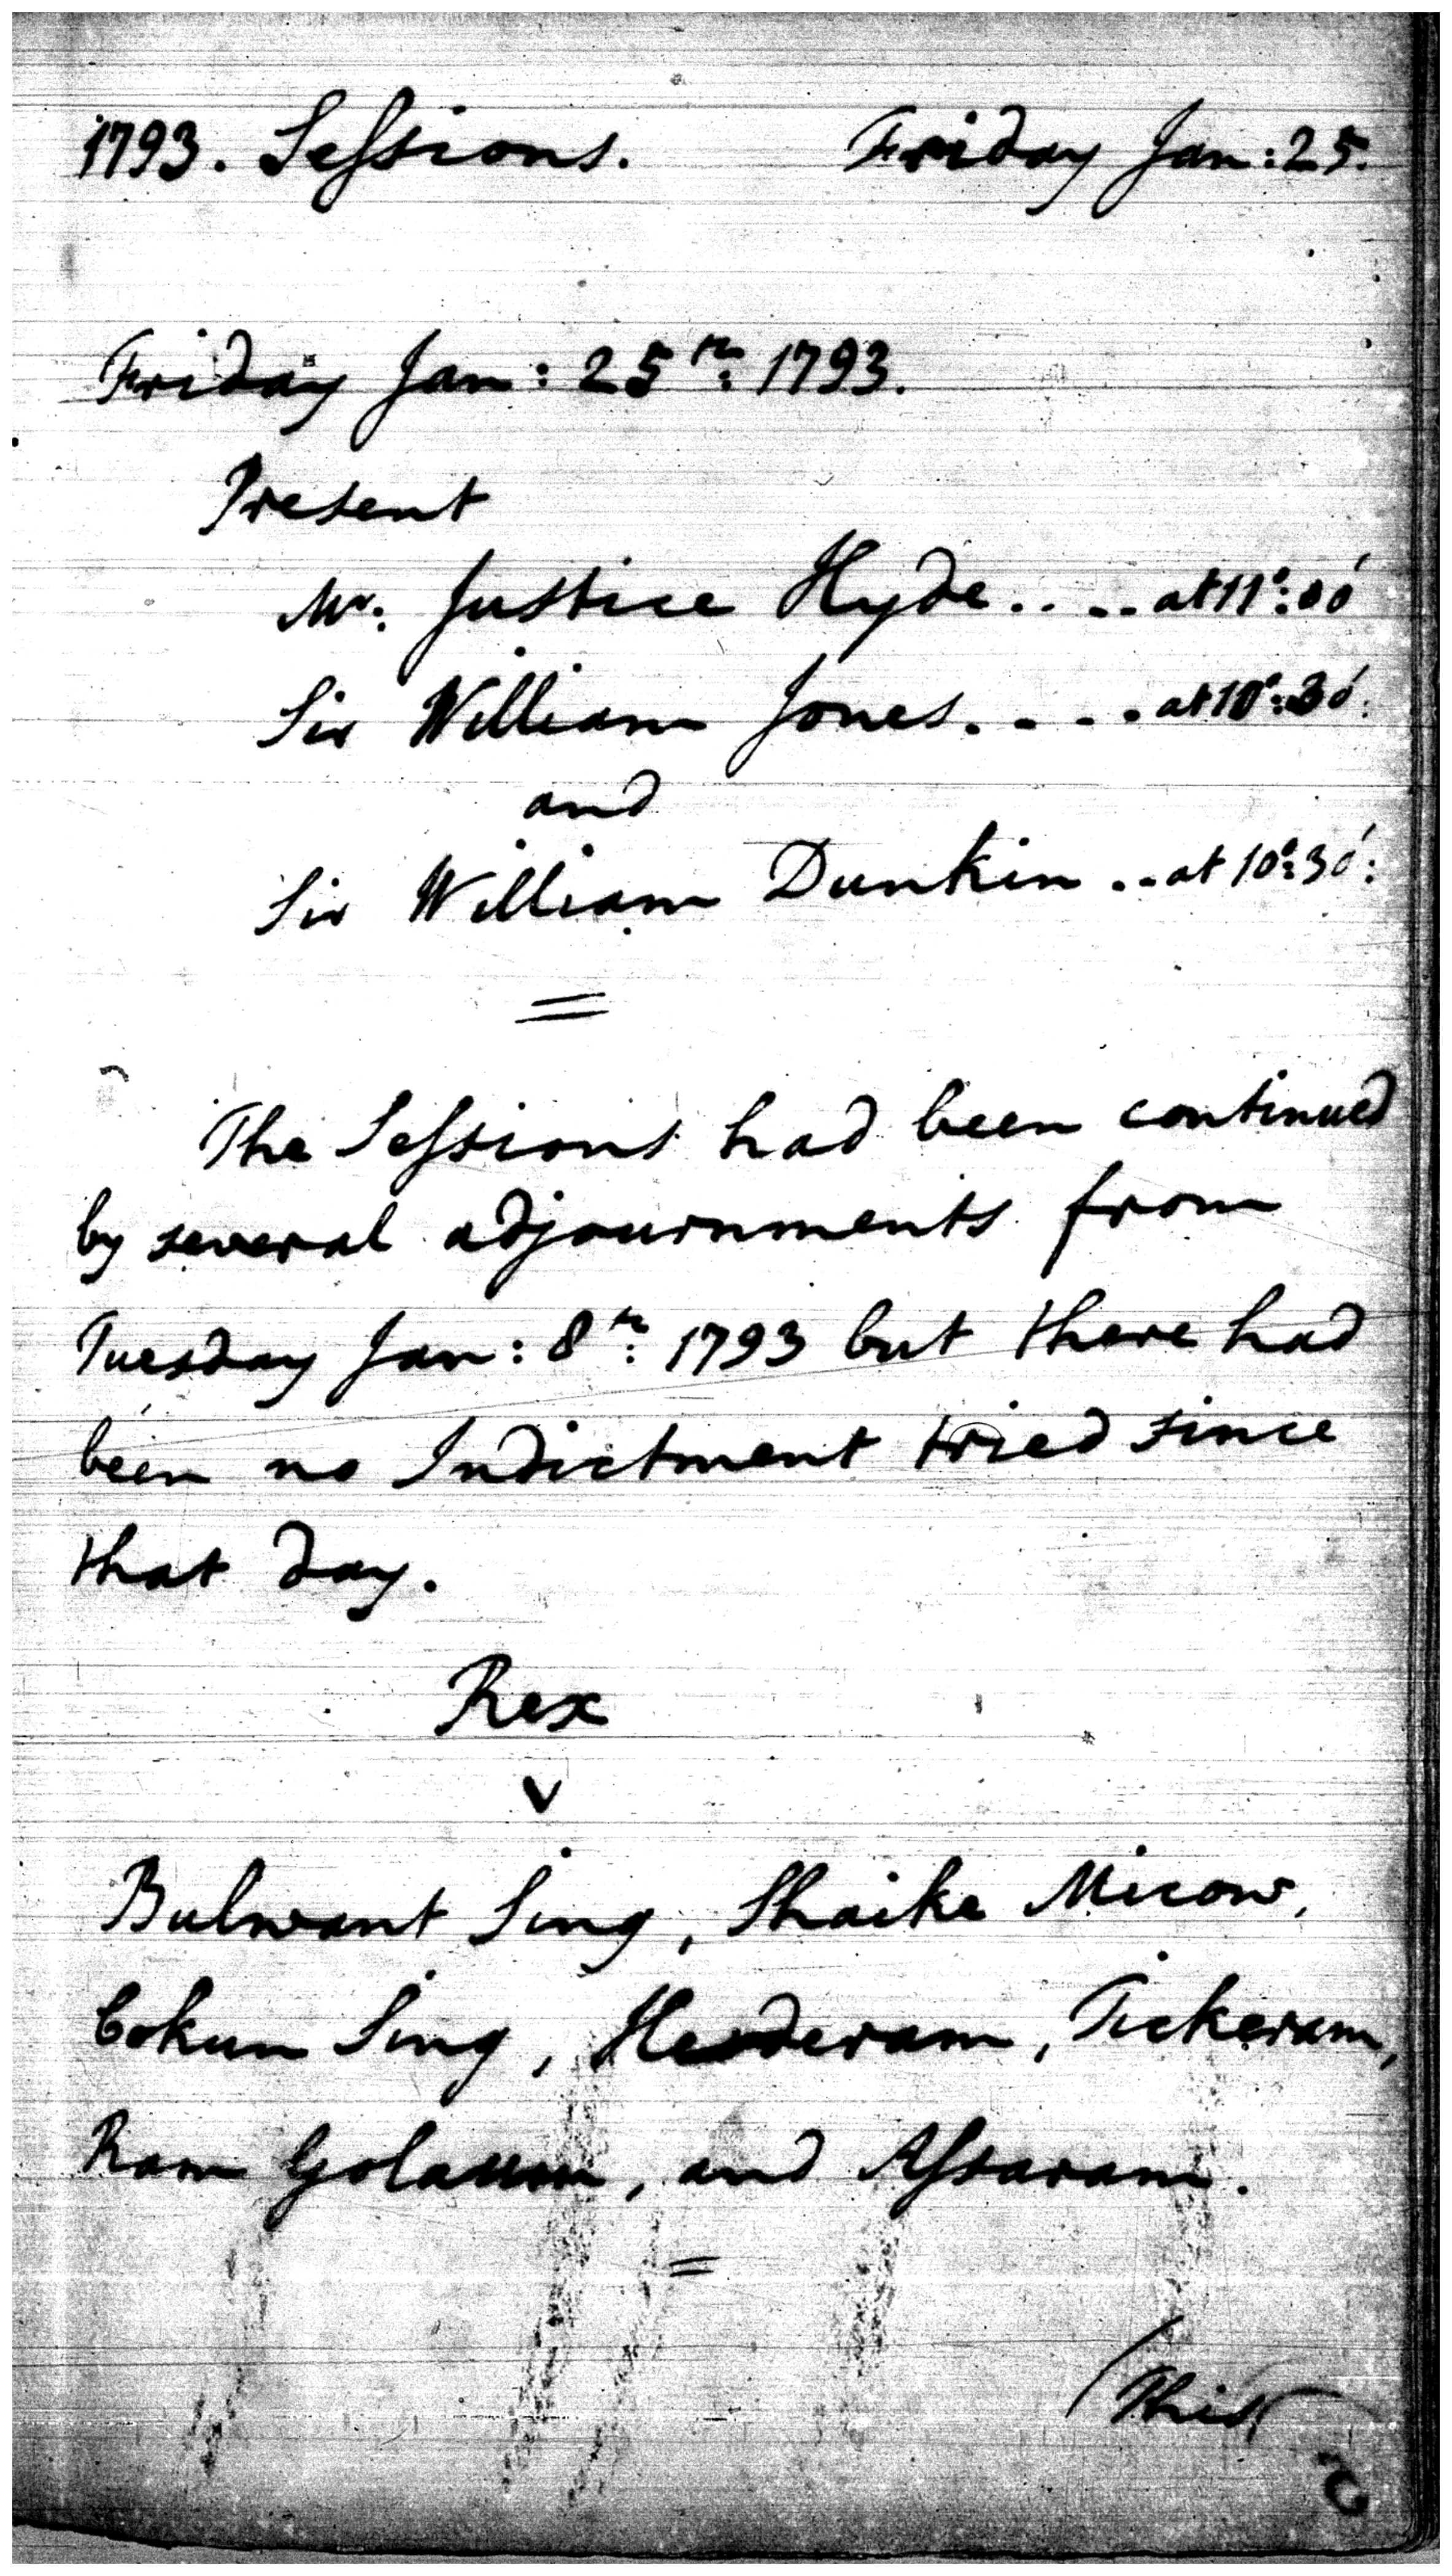 1793. Sessions. Friday Jan: 25.
Friday Jan: 25th: 1793.
Present
Mr. Justice Hyde.... at 11°:00'
Sir William Jones.... at 10°:30':
and
Sir William Dunkin .. at 10°:30':
The Sessions had been continued
by several adjournments from
Tuesday Jan: 8th: 1793 but there had
been no Indictment tried since
that day.
Rex
v
Bulwant Sing, Shaike Micow,
Cokun Sing, Herderam, Tickeram,
Ram Golaum, and Assaram.
(This